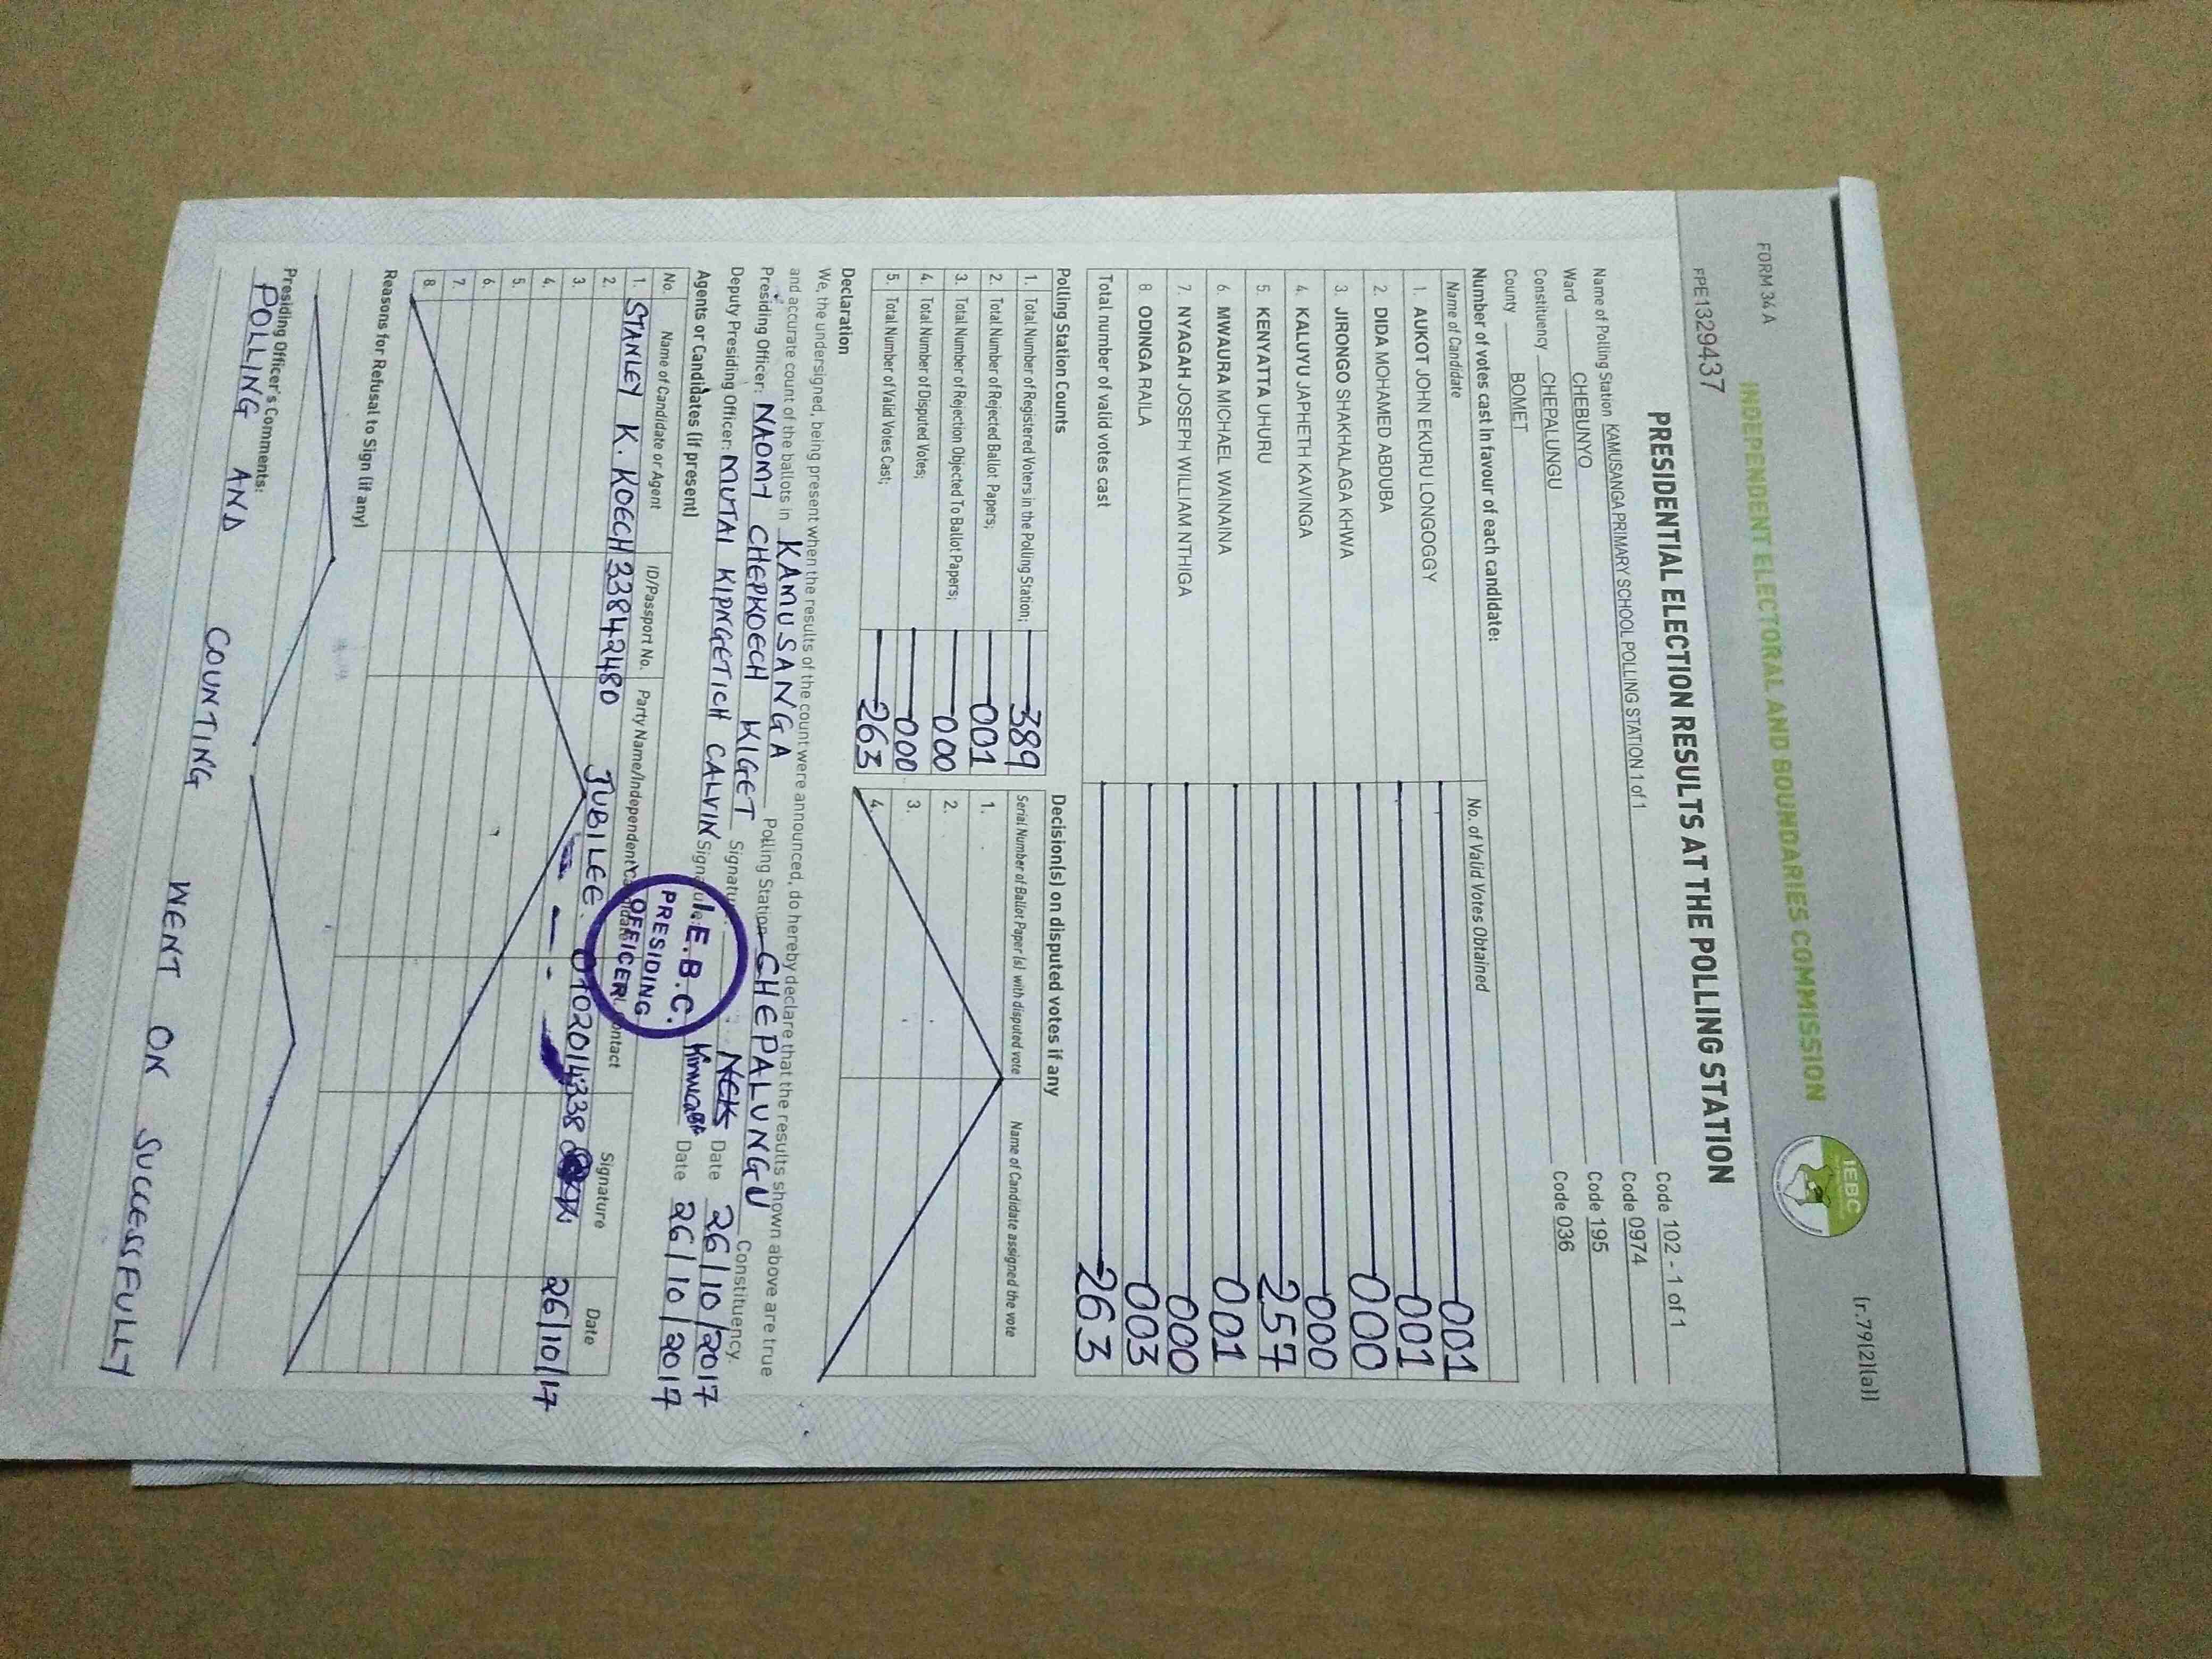 FORM 34 A
(r.79(2)(a))
INDEPENDENT ELECTORAL AND BOUNDARIES COMMISSION
IEBC
FPE1329437
PRESIDENTIAL ELECTION RESULTS AT THE POLLING STATION
Name of Polling Station KAMUSANGA PRIMARY SCHOOL POLLING STATION 1 of 1 Code 102 - 1 of 1
Ward CHEBUNYO Code 0974
Constituency CHEPALUNGU Code 195
County BOMET Code 036
Number of votes cast in favour of each candidate:
Name of Candidate No. of Valid Votes Obtained
1. AUKOT JOHN EKURU LONGOGGY 001
2. DIDA MOHAMED ABDUBA 001
3. JIRONGO SHAKHALAGA KHWA 000
4. KALUYU JAPHETH KAVINGA 000
5. KENYATTA UHURU 257
6. MWAURA MICHAEL WAINAINA 001
7. NYAGAH JOSEPH WILLIAM NTHIGA 000
8 ODINGA RAILA 003
Total number of valid votes cast 263
Polling Station Counts
1. Total Number of Registered Voters in the Polling Station; 389
2. Total Number of Rejected Ballot Papers; 001
3. Total Number of Rejection Objected To Ballot Papers; 000
4. Total Number of Disputed Votes; 000
5. Total Number of Valid Votes Cast; 263
Decision(s) on disputed votes if any
Serial Number of Ballot Paper (s) with disputed vote Name of Candidate assigned the vote
1.
2.
3.
4.
Declaration
We, the undersigned, being present when the results of the count were announced, do hereby declare that the results shown above are true
and accurate count of the ballots in KAMUSANGA Polling Station CHEPALUNGU Constituency.
Presiding Officer: NAOMY CHEPKOECH KIGET Signature: Date 26/10/2017
Deputy Presiding Officer: MUTAI KIPNGETICH CALVIN Signature: Date 26/10/2017
I.E.B.C.
PRESIDING
OFFICER
Agents or Candidates (if present)
No. Name of Candidate or Agent ID/Passport No. Party Name/Independent Candidate Contact Signature Date
1. STANLEY K. KOECH 33842480 JUBILEE 0702014338 26/10/17
2.
3.
4.
5.
6.
7.
8.
Reasons for Refusal to Sign (if any)
Presiding Officer's Comments:
POLLING AND COUNTING WENT ON SUCCESSFULLY